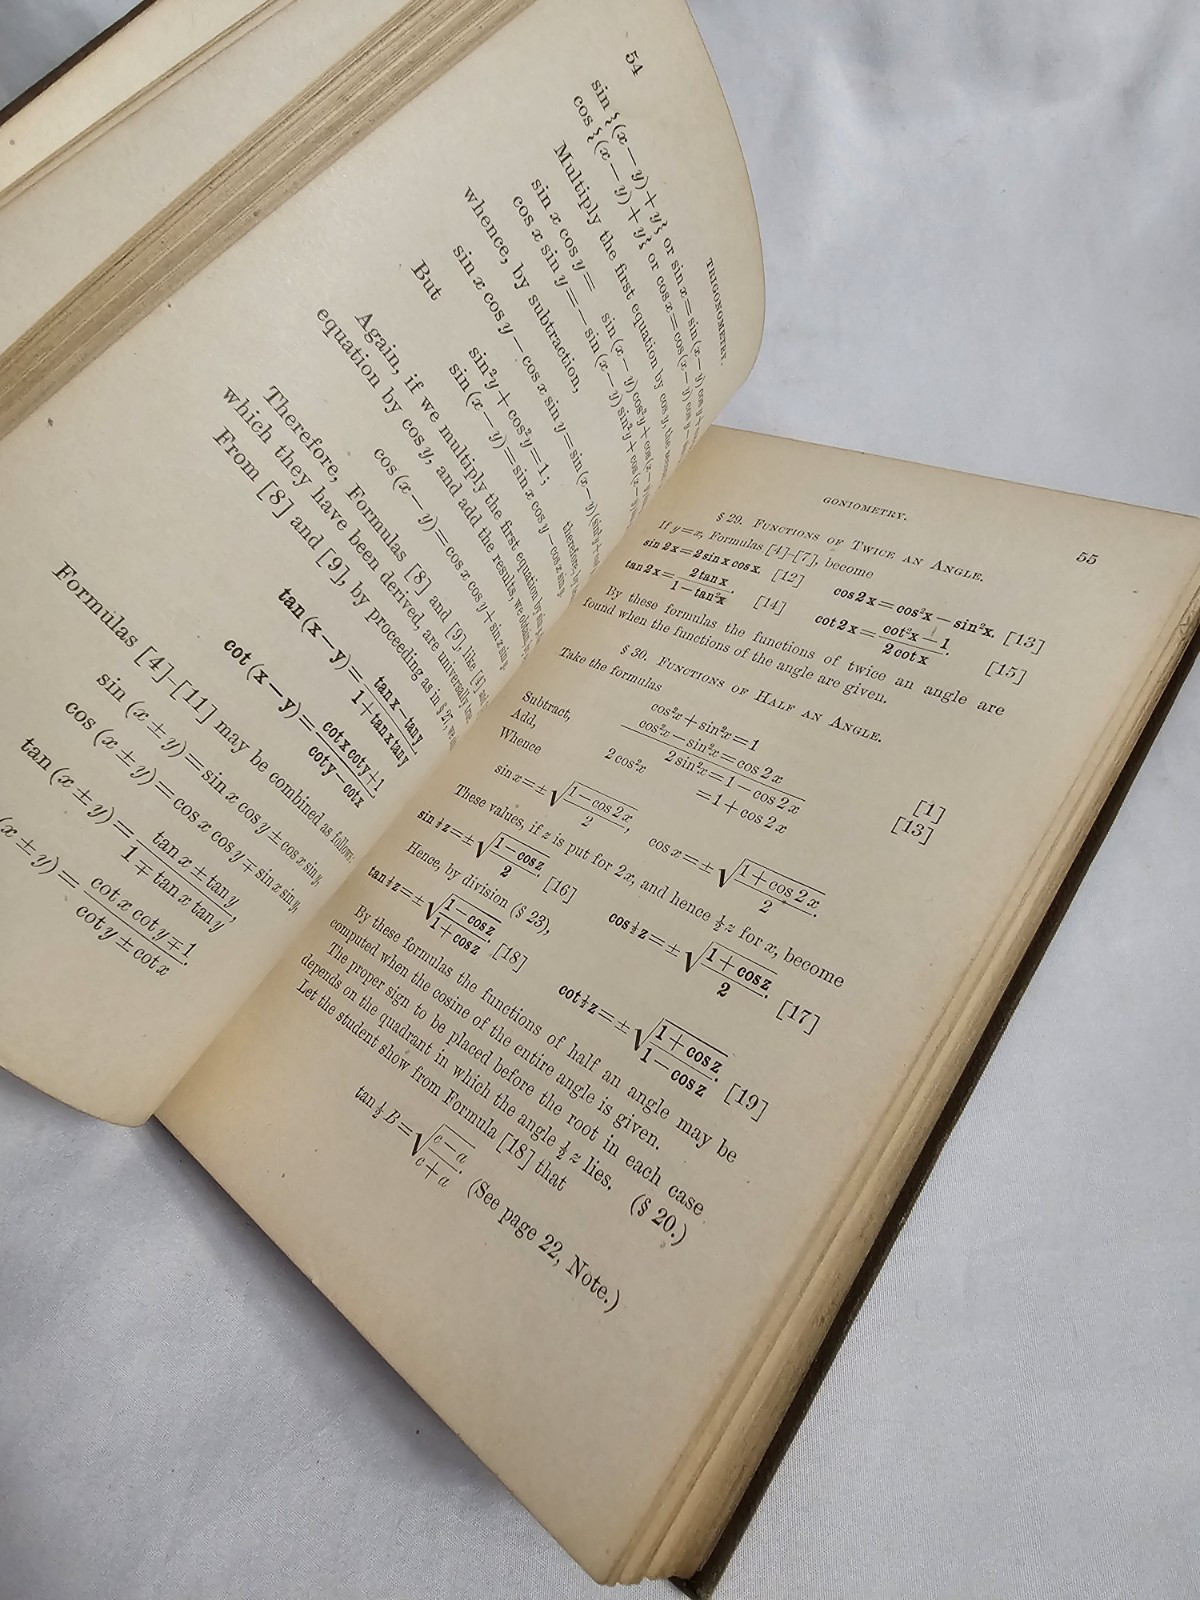 54
TRIGONOMETRY.
sin {(x — y) + y} or sin x = sin (x — y) cos y +
cos {(x — y) + y} or cos x = cos (x — y) cos y —
Multiply the first equation by cos y, the
sin x cos y = sin (x — y) cos²y + cos (x — y)
cos x sin y = — sin (x — y) sin²y + cos (x — y)
whence, by subtraction,
sin x cos y — cos x sin y = sin (x — y) (sin²y +
But sin²y + cos²y = 1; therefore, by
sin (x — y) = sin x cos y — cos x sin y.
Again, if we multiply the first equation by sin y,
equation by cos y, and add the results, we obtain
cos (x — y) = cos x cos y + sin x sin y.
Therefore, Formulas [8] and [9], like [4] and
which they have been derived, are universally true.
From [8] and [9], by proceeding as in § 27, we
tan (x — y) = (tan x — tan y)/(1 + tan x tan y)
cot (x — y) = (cot x cot y + 1)/(cot y — cot x)
Formulas [4]–[11] may be combined as follows:
sin (x ± y) = sin x cos y ± cos x sin y,
cos (x ± y) = cos x cos y ∓ sin x sin y,
tan (x ± y) = (tan x ± tan y)/(1 ∓ tan x tan y),
(x ± y) = (cot x cot y ∓ 1)/(cot y ± cot x).
GONIOMETRY. 55
§ 29. FUNCTIONS OF TWICE AN ANGLE.
If y = x, Formulas [4]–[7], become
sin 2x = 2 sin x cos x. [12] cos 2x = cos²x — sin²x. [13]
tan 2x = 2 tan x/(1 — tan²x). [14] cot 2x = (cot²x — 1)/(2 cot x). [15]
By these formulas the functions of twice an angle are
found when the functions of the angle are given.
§ 30. FUNCTIONS OF HALF AN ANGLE.
Take the formulas
cos²x + sin²x = 1 [1]
cos²x — sin²x = cos 2x [13]
Subtract, 2 sin²x = 1 — cos 2x
Add, 2 cos²x = 1 + cos 2x
Whence
sin x = ± √((1 — cos 2x)/2), cos x = ± √((1 + cos 2x)/2).
These values, if z is put for 2x, and hence ½ z for x, become
sin ½z = ± √((1 — cos z)/2). [16] cos ½z = ± √((1 + cos z)/2). [17]
Hence, by division (§ 23),
tan ½z = ± √((1 — cos z)/(1 + cos z)). [18] cot ½z = ± √((1 + cos z)/(1 — cos z)). [19]
By these formulas the functions of half an angle may be
computed when the cosine of the entire angle is given.
The proper sign to be placed before the root in each case
depends on the quadrant in which the angle ½ z lies. (§ 20.)
Let the student show from Formula [18] that
tan ½ B = √((c — a)/(c + a)). (See page 22, Note.)